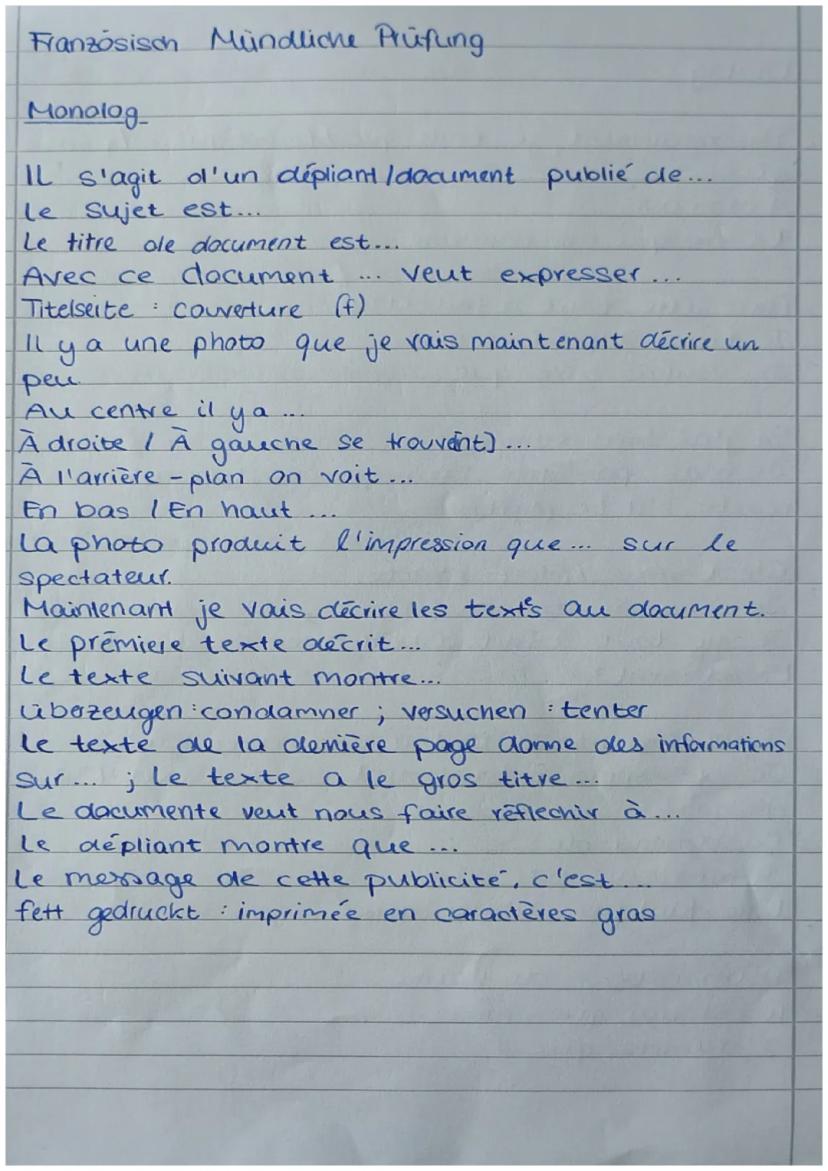 Französisch Mündliche Prüfung
Monolog
IL s'agit d'un dépliant/document publié de...
Le sujet est...
Le titre de document est...
Avec ce document ... veut expresser...
Titelseite : couverture (f)
Il y a une photo que je vais maintenant décrire un
peu.
Au centre il y a ...
À droite / À gauche se trouv(ent)...
À l'arrière-plan on voit...
En bas / En haut ...
La photo produit l'impression que... sur le
spectateur.
Maintenant je vais décrire les textes au document.
Le prémiere texte décrit...
Le texte suivant montre...
überzeugen : condamner ; versuchen : tenter
Le texte de la dernière page donne des informations
sur... ; Le texte a le gros titre...
Le documente veut nous faire réflechir à...
Le dépliant montre que ...
Le message de cette publicité, c'est...
fett gedruckt : imprimée en caractères gras